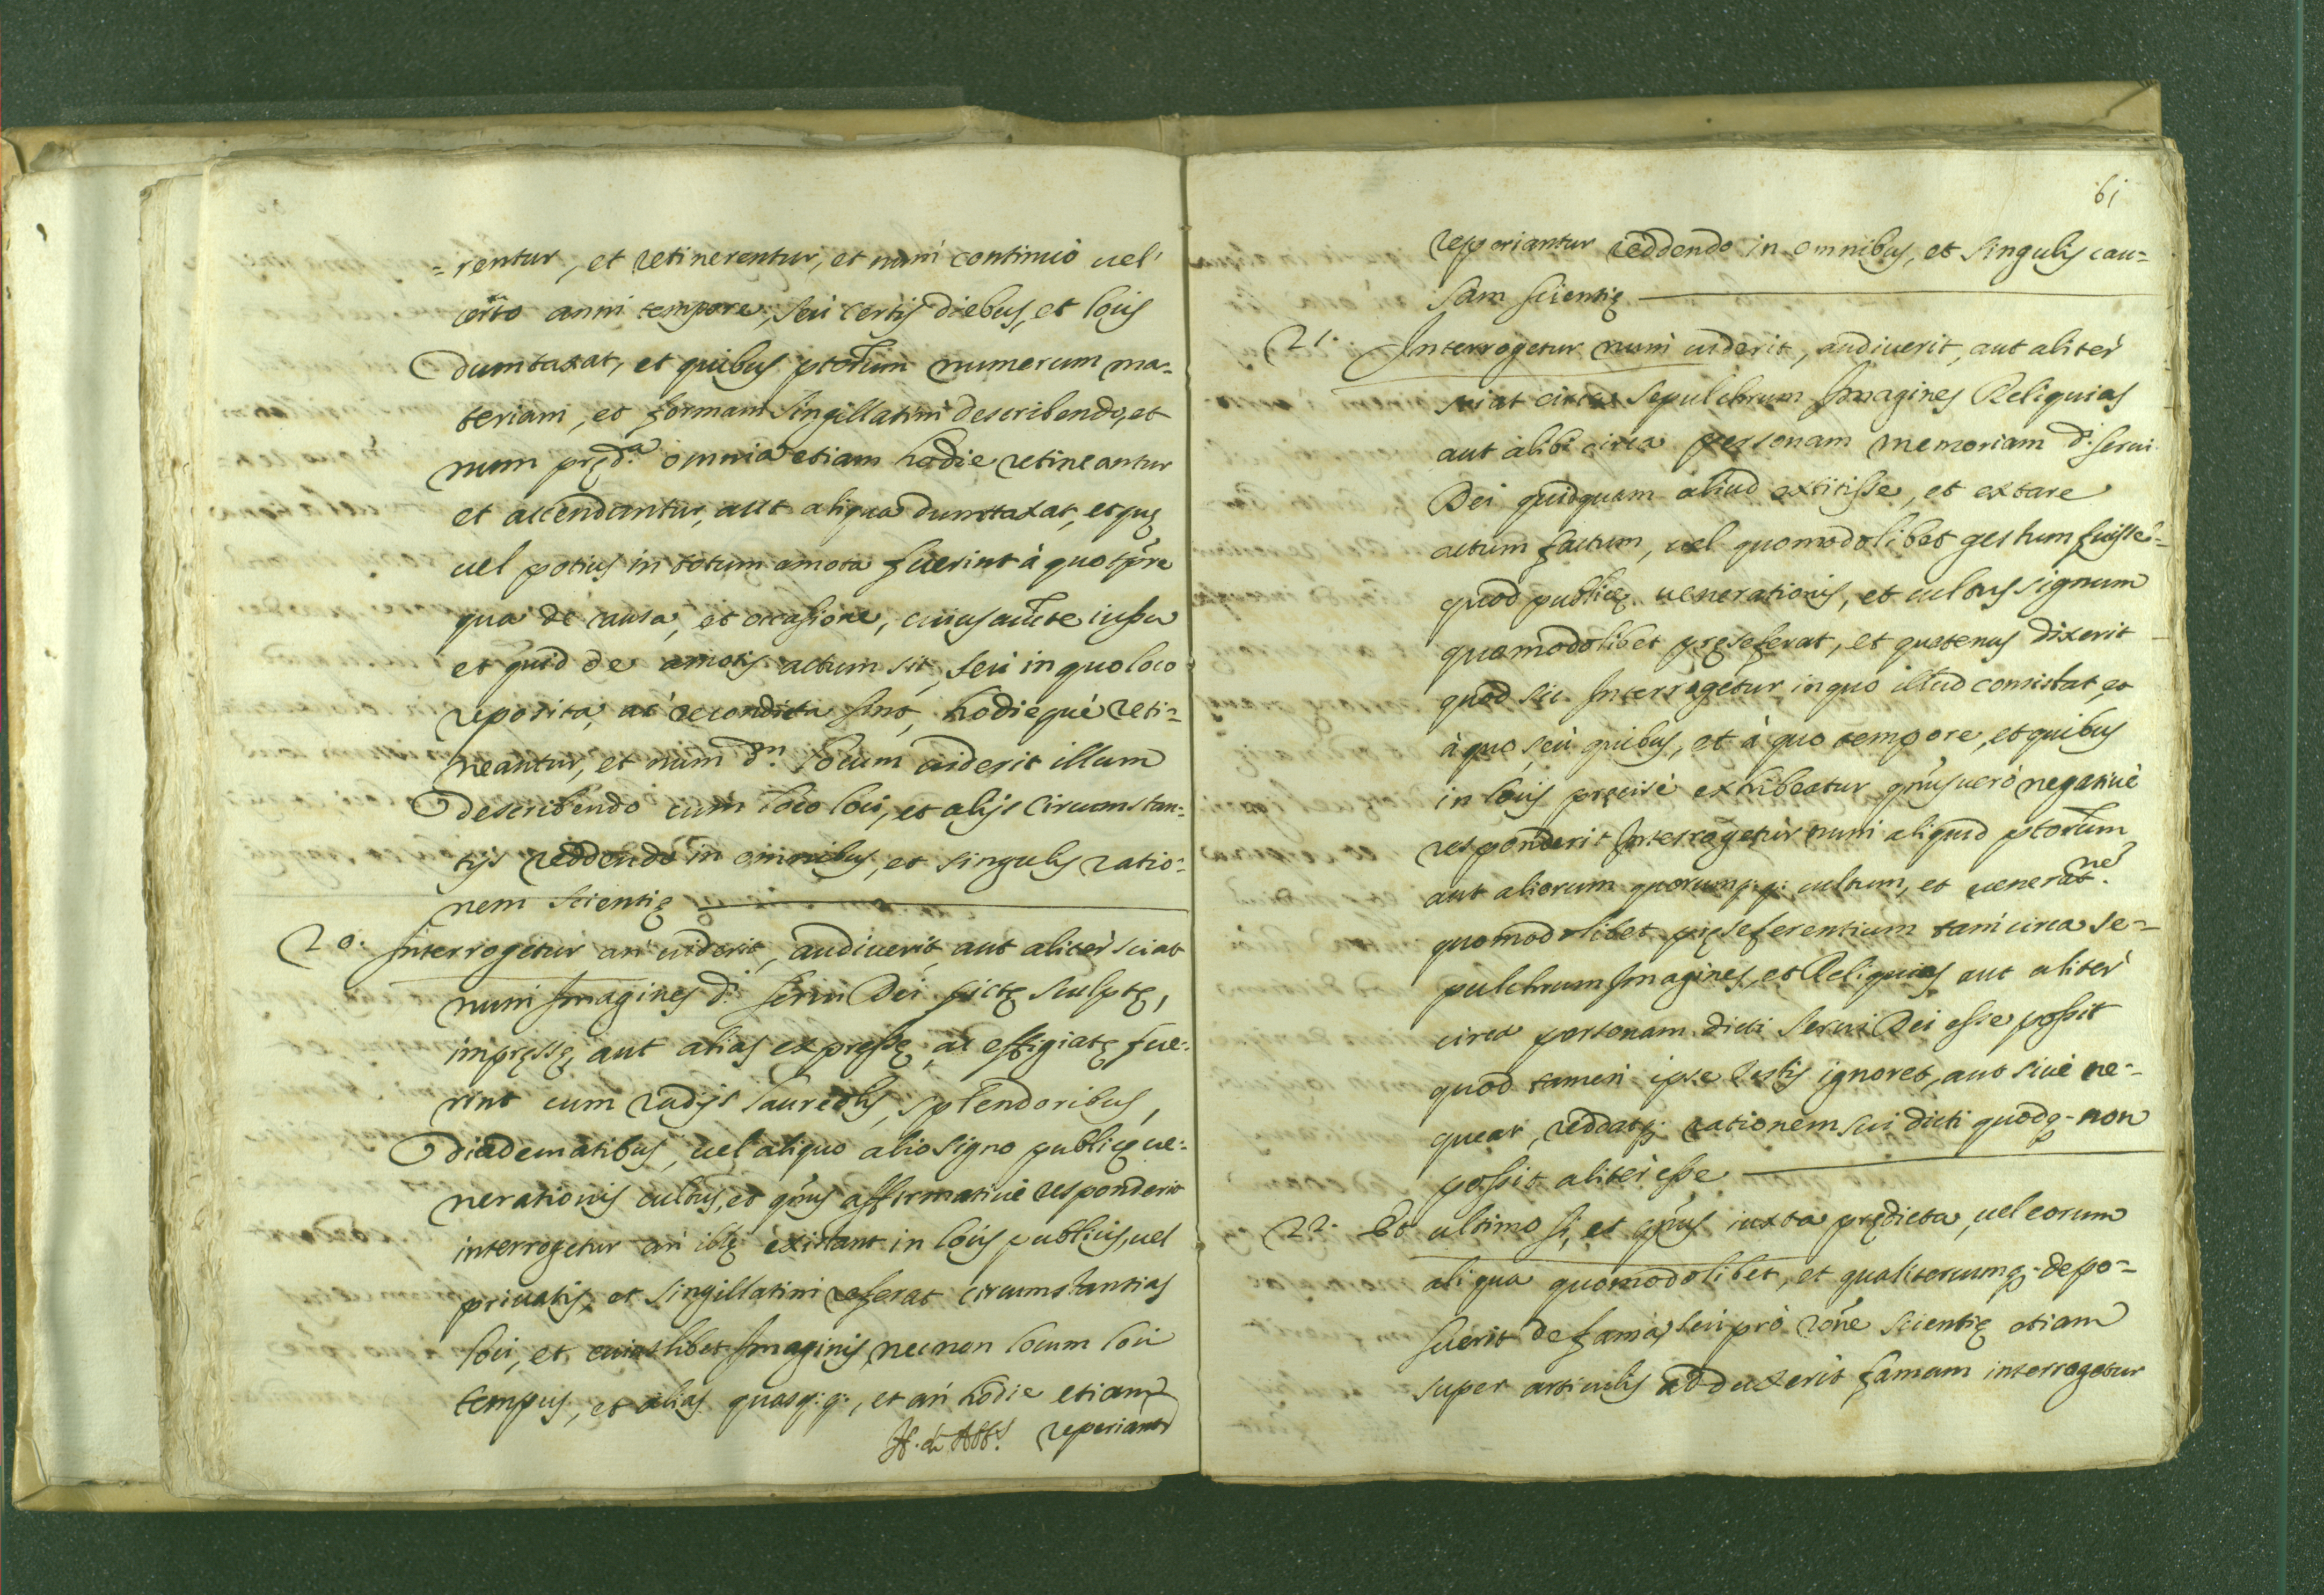 =rentur, et retinerentur, et num continuò uel
certo anni tempore, seu certis diebus, et locis
dumtaxat, et quibus ptorum numerum ma-
teriam, et formam singillatim describendo, et
num pręd.ᵃ omnia etiam hodie retineantur
et accendantur, aut aliqua dumtaxat, et quę
uel potius in totum amota fuerint à quo tpre
qua de causa, et occasione, cuius aucte iussu
et quid de amotis actum sit, seu in quo loco
reposita, ac recondita sint, hodieque reti-
neantur, et num d.ᵐ locum uiderit illum
describendo cum loco loci, et alijs circumstan-
tijs reddendo in omnibus, et singulis ratio-
nem scientię
20. Interrogetur an uiderit, audiuerit, aut aliter sciat
num Imagines d.ⁱ serui Dei pictę sculptę,
impręssę, aut alias expressę, ac effigiatę fue-
rint cum radijs laureolis, splendoribus,
diadematibus, uel aliquo alio signo publicę ue-
nerationis cultus, et qtnus affirmatiuè responderit
interrogetur an illę existant in locis publicis, uel
priuatis, et singillatim referat circumstantias
loci, et cuiuslibet Imaginis, necnon locum loci
tempus, et alias quasq;q;, et an hodie etiam
reperiantr
61
reperiantur reddendo in omnibus, et singulis cau-
sam scientię
21. Interrogetur num uiderit, audiuerit, aut aliter
sciat circa sepulchrum Imagines Reliquias
aut alibi circa personam memoriam d.ⁱ serui
Dei quidquam aliud extitisse, et extare
actum factum, uel quomodolibet gestum fuisse-
quod publicę uenerationis, et cultus signum
quomodolibet pręseferat, et quatenus dixerit
quod sic. Interrogetur in quo illud consistat, et
à quo, seu quibus, et à quo tempore, et quibus
in locis pręcisè exhibeatur qtnus uerò negatiuè
responderit Interrogetur num aliquid ptorum
aut aliorum quorumq;q; cultum, et uenerat.ⁿᵉ
quomodolibet pręseferentium tam circa se-
pulchrum Imagines, et Reliquias aut aliter
circa personam dicti serui Dei esse possit
quod tamen ipse testis ignoret, aut scire ne-
queat, reddatq; rationem sui dicti quodq; non
possit aliter esse
22. Et ultimo si, et qtnus iuxta prędicta, uel eorum
aliqua quomodolibet, et qualitercumq; depo-
suerit de fama, seu pro rone scientię etiam
super articulis adduxerit famam interrogetur